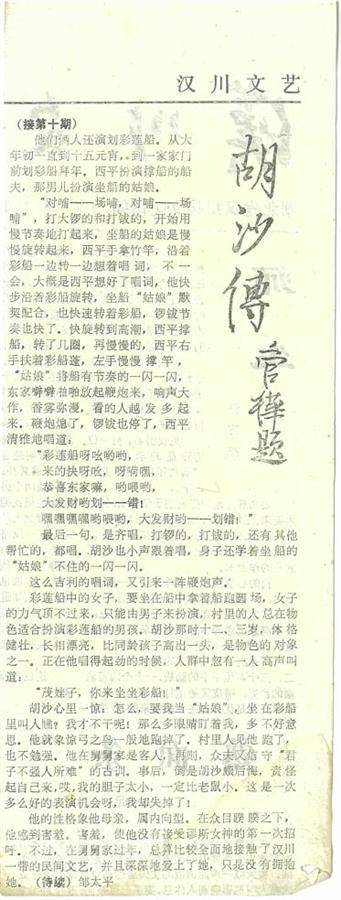 汉川文艺
胡沙传
管桦题
（接第十期）
他们俩人还演划彩莲船。从大
年初一直到十五元宵，到一家家门
前划彩船拜年。西平扮演撑船的船
夫，那男儿扮演坐船的姑娘。
“对啪——场啪，对啪——场
啪”，打大锣的和打钹的，开始用
慢节奏地打起来，坐船的姑娘是慢
慢旋转起来，西平手拿竹竿，沿着
彩船一边转一边想着唱词，不一
会，大概是西平想好了唱词，他快
步沿着彩船旋转，坐船“姑娘”默
契配合，也快速转着彩船，锣钹节
奏也快了。快旋转到高潮，西平撑
船，转了几圈，再慢慢的，西平右
手扶着彩船蓬，左手慢慢撑竿，
“姑娘”将船有节奏的一闪一闪，
东家噼噼啪啪放起鞭炮来，响声大
作，香雾弥漫，看的人越发多起
来。鞭炮熄了，锣钹也停了，西平
清雅地唱道：
“彩莲船呀吆哟哟，
来的快呀吆，呀嗬嘿，
恭喜东家嘛，哟喂哟，
大发财哟划——错！
嘿嘿嘿嘿哟喂哟，大发财哟——划错！”
最后一句，是齐唱，打锣的，打钹的，还有其他
帮忙的，都唱。胡沙也小声跟着唱，身子还学着坐船的
“姑娘”不住的一闪一闪。
这么吉利的唱词，又引来一阵鞭炮声。
彩莲船中的女子，要坐在船中拿着船跑圆场，女子
的力气顶不过来，只能由男子来扮演，村里的人总在物
色适合扮演彩莲船的男孩。胡沙那时十二、三岁，体格
健壮，长相漂亮，比同龄孩子高出一头，是物色的对象
之一。正在他唱得起劲的时候，人群中忽有一人高声叫
道：
“茂娃子，你来坐坐彩船！”
胡沙心里一惊，怎么，要我当“姑娘”，坐在彩船
里叫人瞧？我才不干呢！那么多眼睛盯着我，多不好意
思。他就象惊弓之鸟一般地跑掉了。村里人见他跑了，
也不勉强。他在舅舅家是客人，再则，众夫又信守“君
子不强人所难”的古训。事后，倒是胡沙颇后悔，责怪
起自己来，哎，我的胆子太小，一定比老鼠小。这是一次
多么好的表演机会呀，我却失掉了！
他的性格象他母亲，属内向型。在众目睽睽之下，
他感到害羞。害羞，使他没有接受缪斯女神的第一次招
呼。不过，在舅舅家过年，总算比较全面地接触了汉川
一带的民间文艺，并且深深地爱上了她，只是没有拥抱
她。（待续）邹太平